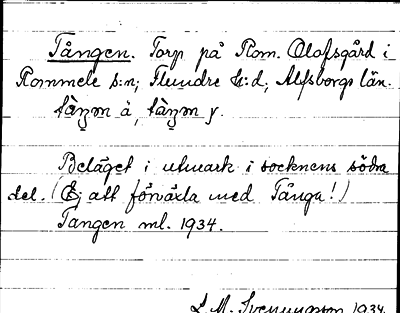 Tången. Torp på Rom. Olofsgård i
Rommele s:n; Flundre h:d; Älfsborgs län.
tàŋən å, tàŋən y.
Beläget i utmark i socknens södra
del. (Ej att förväxla med Tånga!)
Tangen ml. 1934.
1934